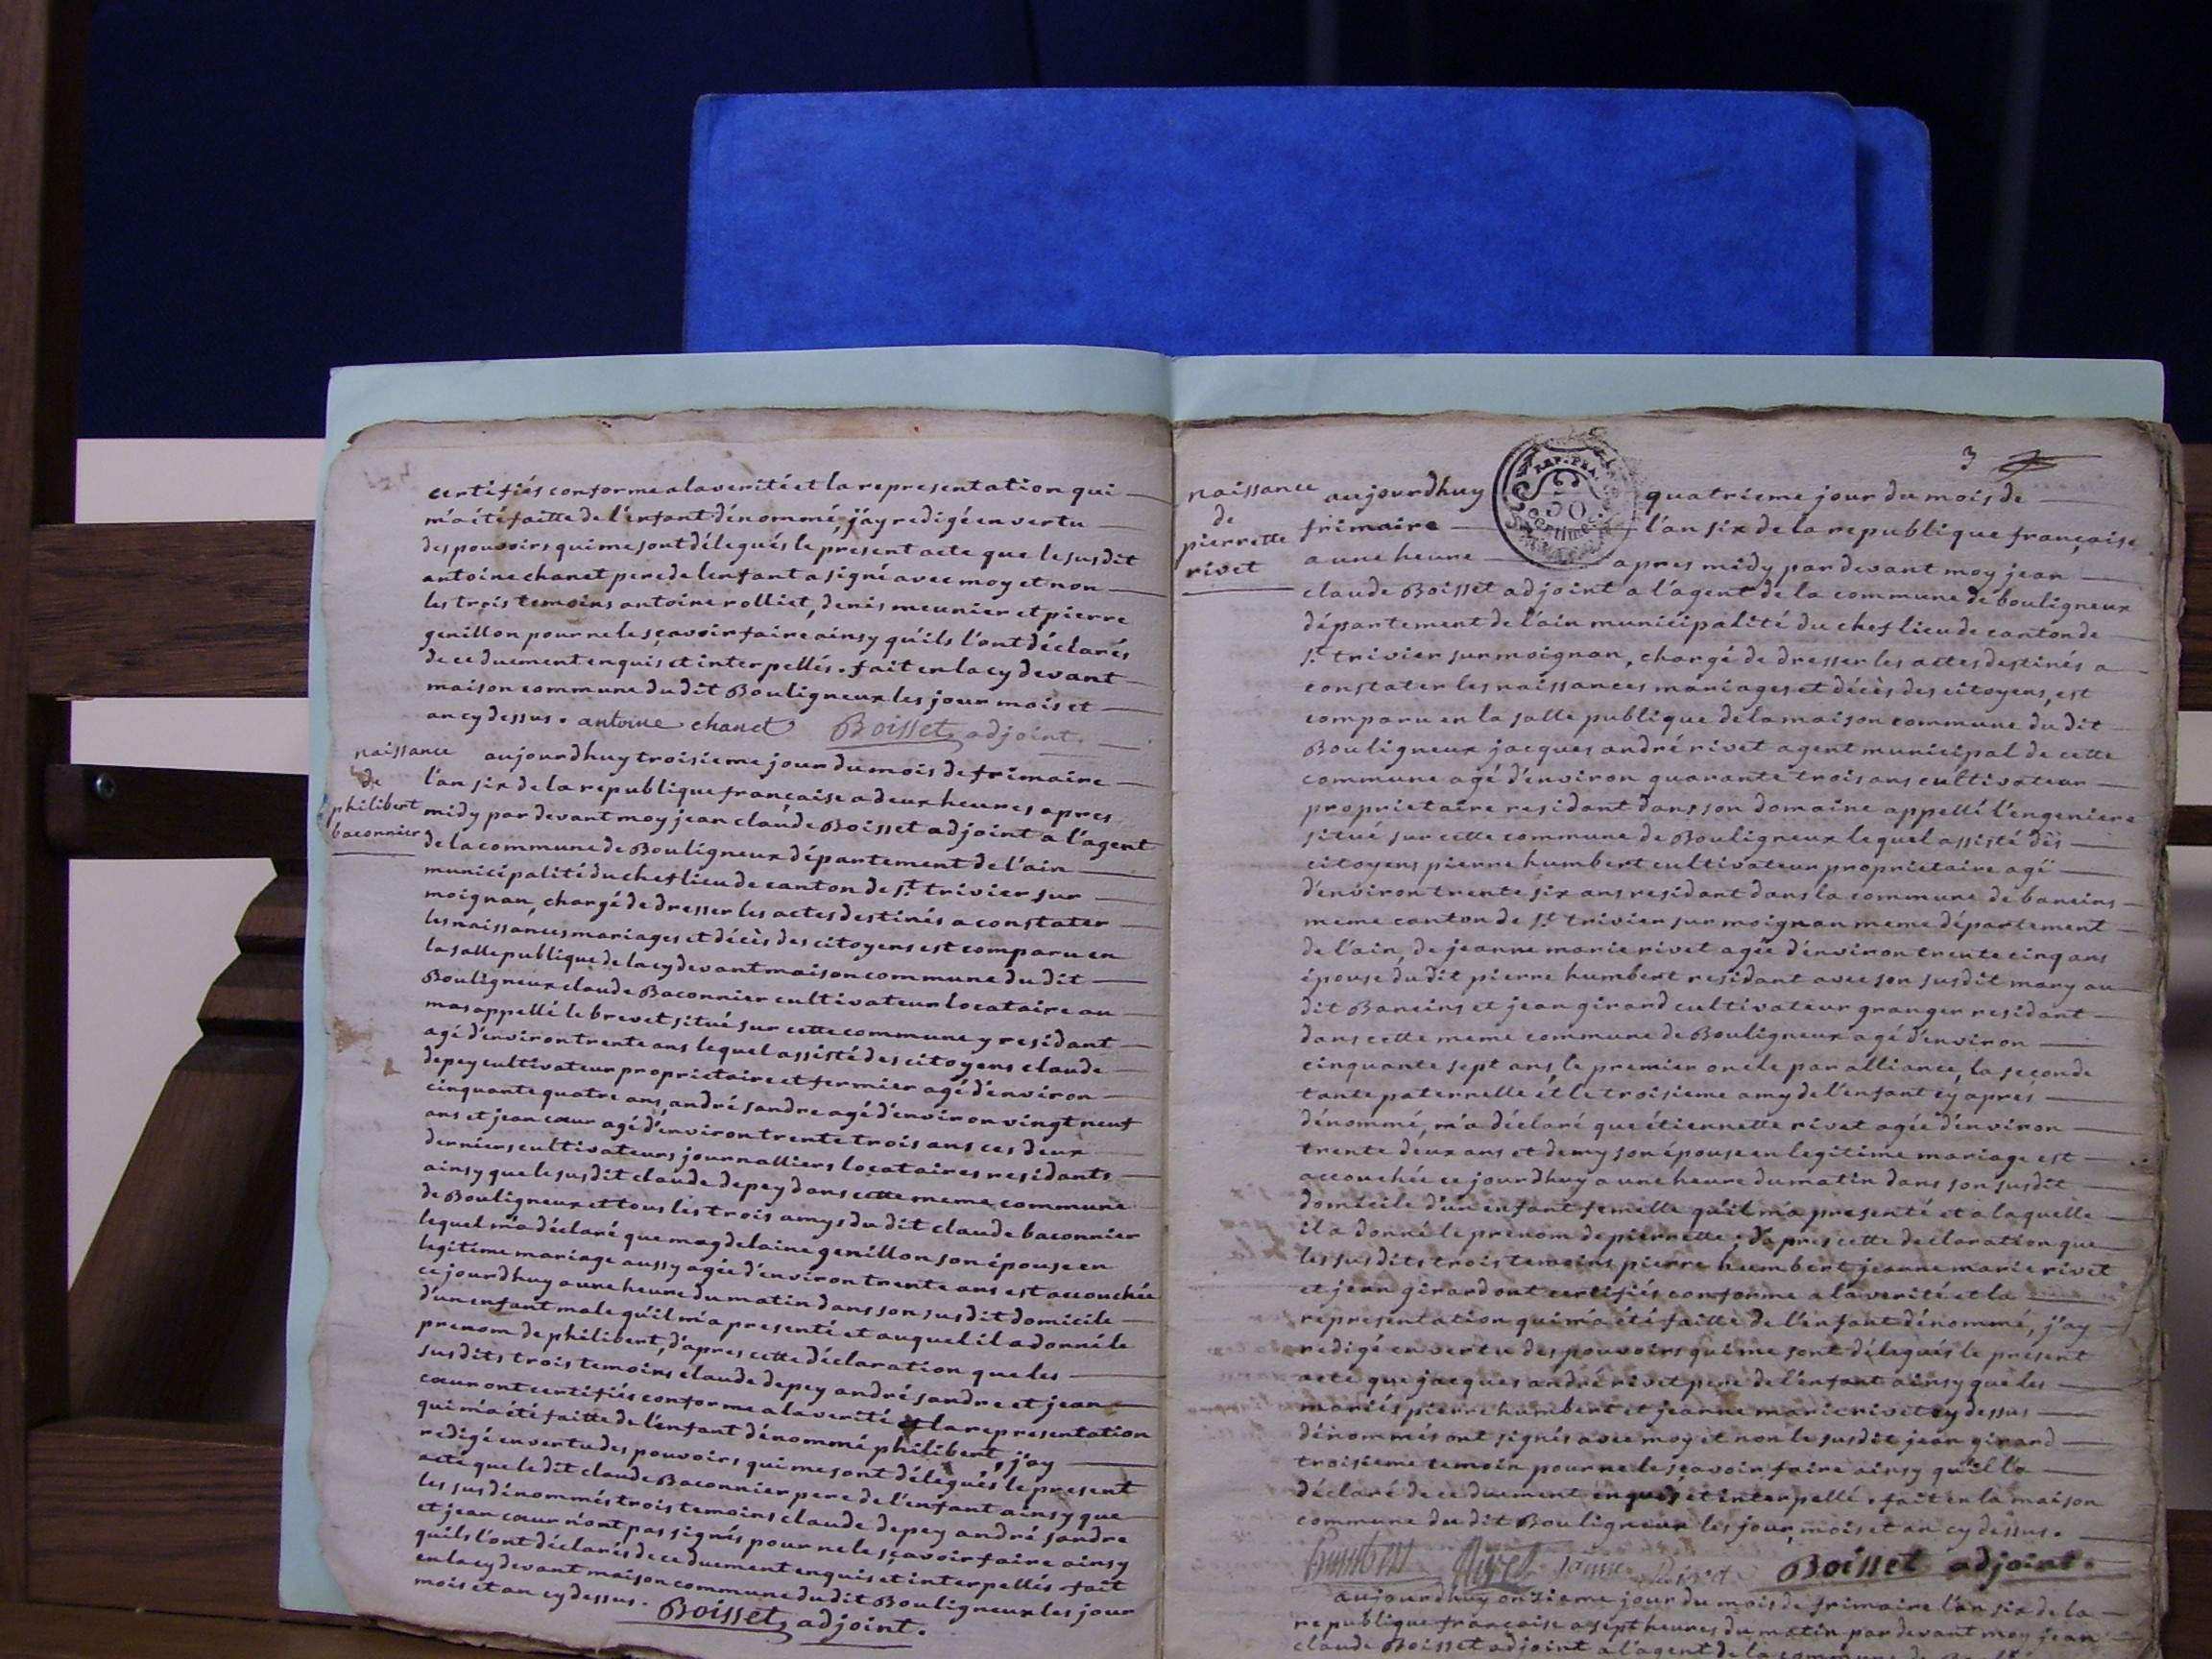 certifiés conforme a la verité et la representation qui
m'a été faitte de l'enfant dénommé, j'ay redigé en vertu
des pouvoirs qui me sont délegués le present acte que le susdit
antoine chanet pere de l'enfant a signé avec moy et non
les trois temoins antoine rolliet, denis meunier et pierre
genillon pour ne le sçavoir faire ainsy qu'ils l'ont déclarés
de ce duement enquis et interpellés. fait en la cy devant
maison commune du dit Bouligneux les jour mois et
an cy dessus. antoine chanet Boisset, adjoint.
naissance
de
philibert
baconnier
aujourdhuy troisieme jour du mois de frimaire
l'an six de la republique française a deux heures apres
midy par devant moy jean claude Boisset adjoint a l'agent
de la commune de Bouligneux département de l'ain
municipalité du chef lieu de canton de St. trivier sur
moignan, chargé de dresser les actes destinés a constater
les naissances mariages et décès des citoyens est comparu en
la salle publique de la cy devant maison commune du dit
Bouligneux claude Baconnier cultivateur locataire au
mas appellé le brevet situé sur cette commune y residant
agé d'environ trente ans lequel assisté des citoyens claude
depey cultivateur proprietaire et fermier agé d'environ
cinquante quatre ans, andré sandre agé d'environ vingt neuf
ans et jean cœur agé d'environ trente trois ans ces deux
derniers cultivateurs journalliers locataires residants
ainsy que le susdit claude depey dans cette meme commune
de Bouligneux et tous les trois amys du dit claude baconnier
lequel m'a déclaré que magdelaine genillon son épouse en
legitime mariage aussy agée d'environ trente ans est accouchée
ce jourdhuy a une heure du matin dans son susdit domicile
d'un enfant male qu'il m'a presenté et auquel il a donné le
prenom de philibert, d'apres cette déclaration que les
susdits trois temoins claude depey andré sandre et jean
cœur ont certifiés conforme a la verité et la representation
qui m'a été faitte de l'enfant dénommé philibert, j'ay
redigé en vertu des pouvoirs qui me sont délegués le present
acte que le dit claude Baconnier pere de l'enfant ainsy que
les sus dénommés trois temoins claude depey andré sandre
et jean cœur n'ont pas signés pour ne le sçavoir faire ainsy
quils l'ont déclarés de ce duement enquis et interpellés fait
en la cy devant maison commune du dit Bouligneux les jour
mois et an cy dessus. Boisset, adjoint.
3
REP. FRA.
50
centimes
naissance
de
pierrette
rivet
aujourdhuy quatrieme jour du mois de
frimaire l'an six de la republique française
a une heure apres midy par devant moy jean
claude Boisset adjoint a l'agent de la commune de bouligneux
département de l'ain municipalité du chef lieu de canton de
St. trivier sur moignan, chargé de dresser les actes destinés a
constater les naissances mariages et décès des citoyens, est
comparu en la salle publique de la maison commune du dit
Bouligneux jacques andré rivet agent municipal de cette
commune agé d'environ quarante trois ans cultivateur
proprietaire residant dans son domaine appellé l'engeniere
situé sur cette commune de Bouligneux lequel assisté des
citoyens pierre humbert cultivateur proprietaire agé
d'environ trente six ans residant dans la commune de baneins
meme canton de St. trivier sur moignan meme département
de l'ain, de jeanne marie rivet agée d'environ trente cinq ans
épouse du dit pierre humbert residant avec son susdit mary au
dit Baneins et jean girard cultivateur granger residant
dans cette meme commune de Bouligneux agé d'environ
cinquante sept ans, le premier oncle par alliance, la seconde
tante paternelle et le troisieme amy de l'enfant cy apres
dénommé, m'a déclaré que étiennette rivet agée d'environ
trente deux ans et demy son épouse en legitime mariage est
accouchée ce jourdhuy a une heure du matin dans son susdit
domicile d'un enfant femelle qu'il m'a presenté et a laquelle
il a donné le prenom de pierrette; d'apres cette declaration que
les susdits trois temoins pierre humbert jeanne marie rivet
et jean girard ont certifiés conforme a la verité et la
representation qui m'a été faitte de l'enfant dénommé, j'ay
redigé en vertu des pouvoirs qui me sont délegués le present
acte que jacques andré rivet pere de l'enfant ainsy que les
mariés pierre humbert et jeanne marie rivet cy dessus
dénommés ont signés avec moy et non le susdit jean girard
troisieme temoin pour ne le sçavoir faire ainsy qu'il l'a
déclaré de ce duement enquis et interpellé. fait en la maison
commune du dit Bouligneux les jour, mois et an cy dessus.
humbert Rivet Boisset adjoint.
aujourdhuy onzieme jour du mois de frimaire l'an six de la
republique française a sept heures du matin par devant moy jean
claude Boisset adjoint a l'agent de la commune de